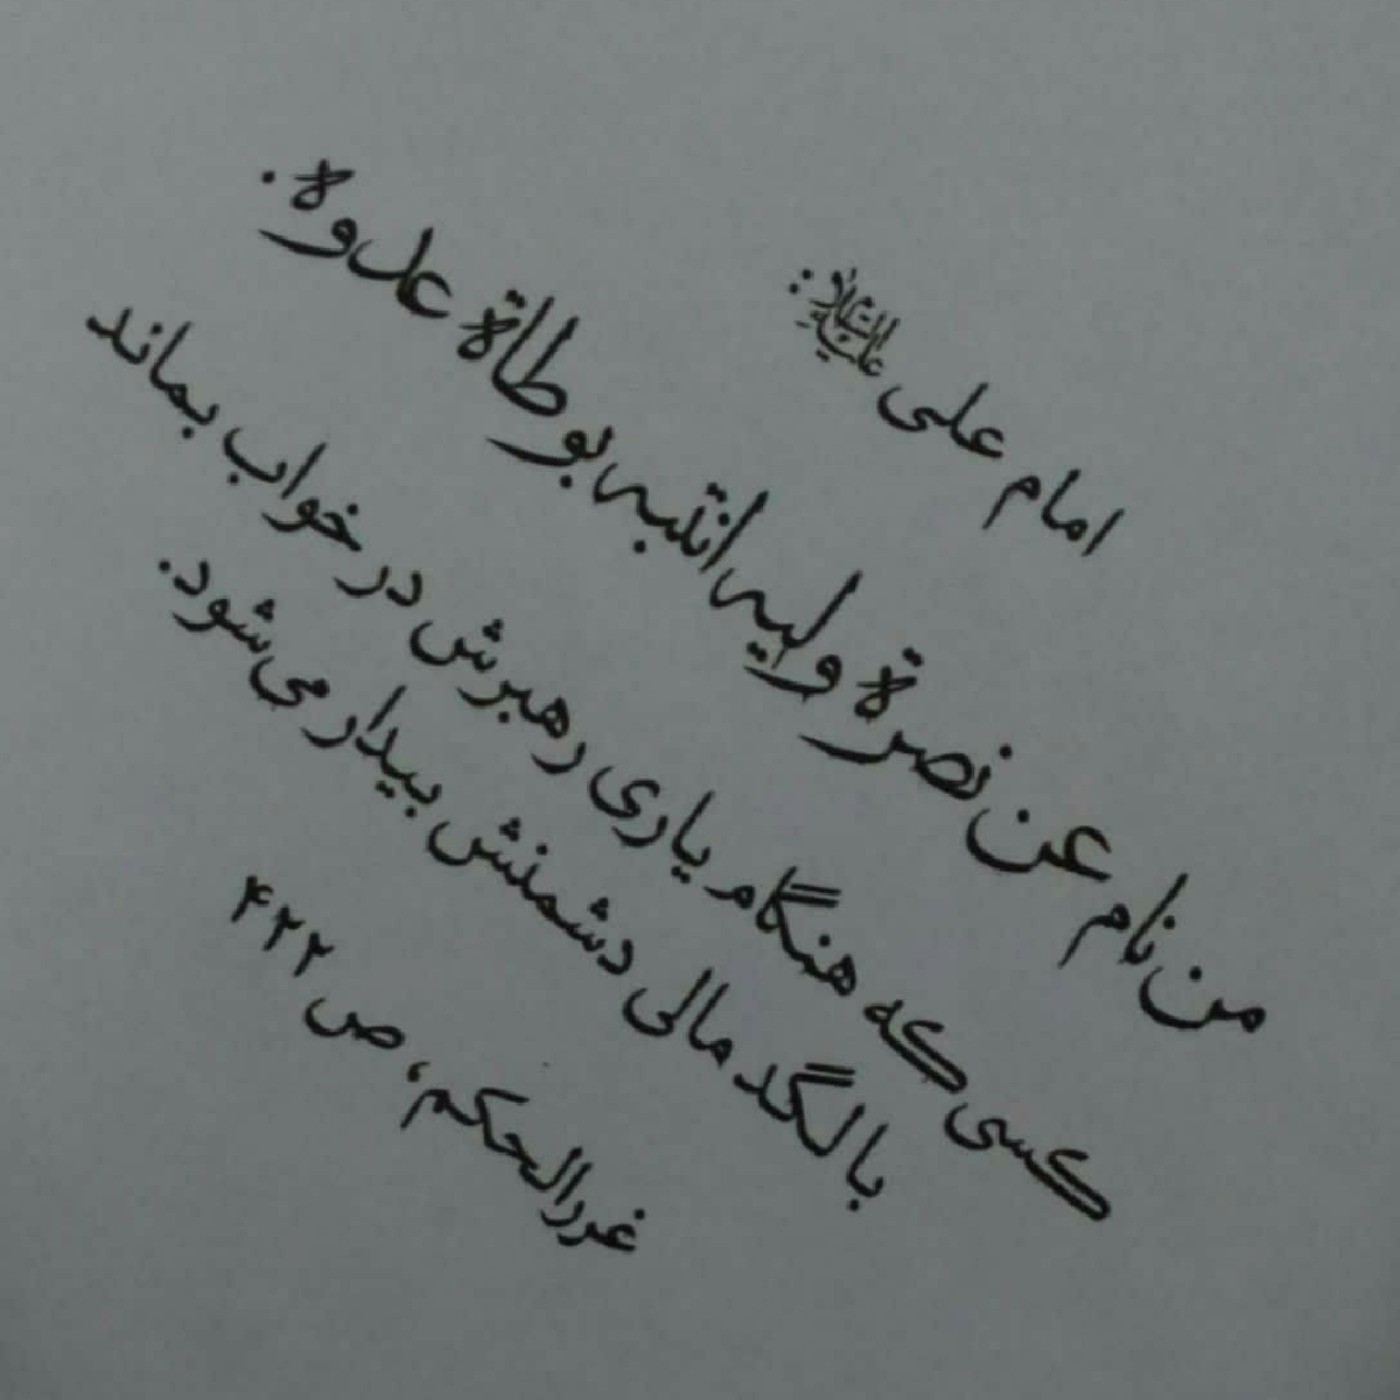 امام علی علیه‌السلام:
من نام عن نصرة ولیه انتبه بوطاة عدوه.
کسی که هنگام یاری رهبرش در خواب بماند
با لگدمالی دشمنش بیدار می‌شود.
غررالحکم، ص ۴۲۲